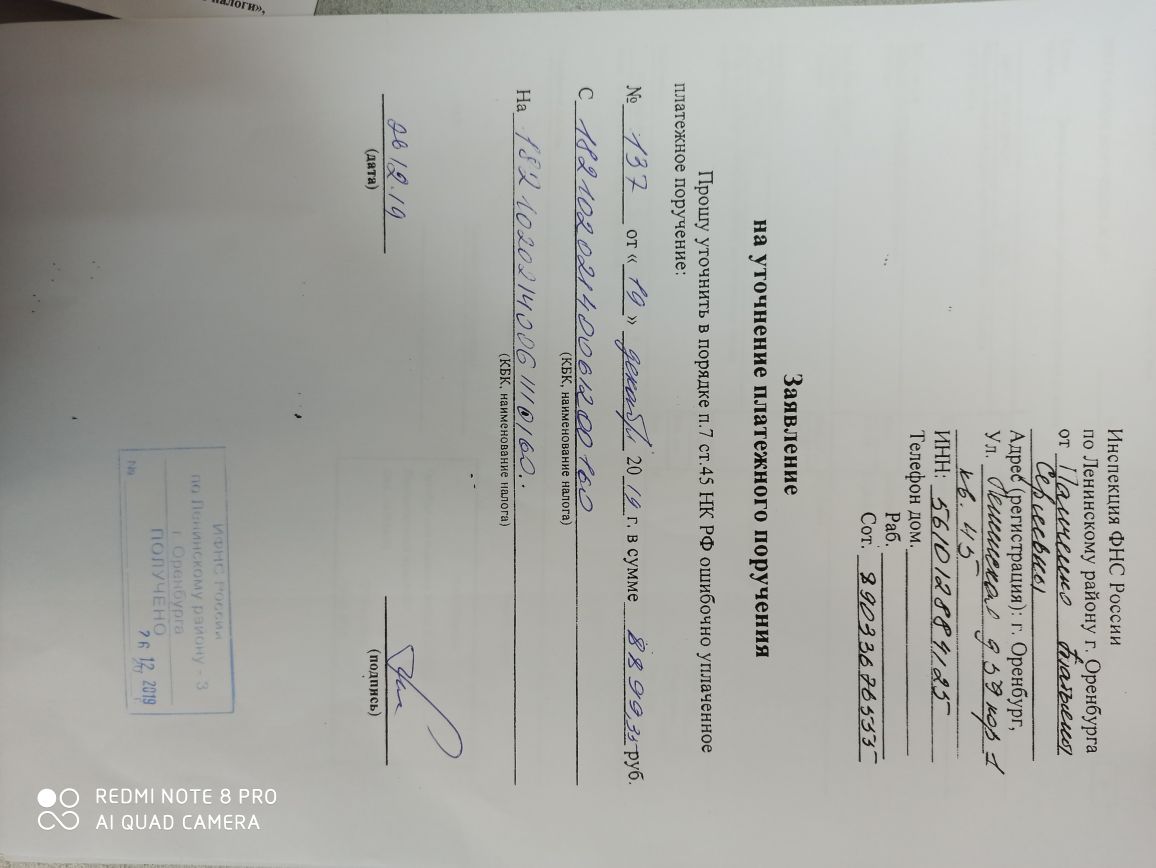 налоги»,
Инспекция ФНС России
по Ленинскому району г. Оренбурга
от Панченко
Сергеевны
Адрес (регистрация): г. Оренбург,
Ул. д 59 кор 1
кв. 45
ИНН:
Телефон дом.
Раб.
Сот. 89033676555
Заявление
на уточнение платежного поручения
Прошу уточнить в порядке п.7 ст.45 НК РФ ошибочно уплаченное
платежное поручение:
№ 137 от « 19 » декабря 20 19 г. в сумме 8899,35 руб.
С 18210202140061200160
(КБК, наименование налога)
На 18210202140061110160
(КБК, наименование налога)
26 12.19
(дата)
(подпись)
ИФНС России
по Ленинскому району - 3
г. Оренбурга
ПОЛУЧЕНО
№ 26 12 2019
REDMI NOTE 8 PRO
AI QUAD CAMERA